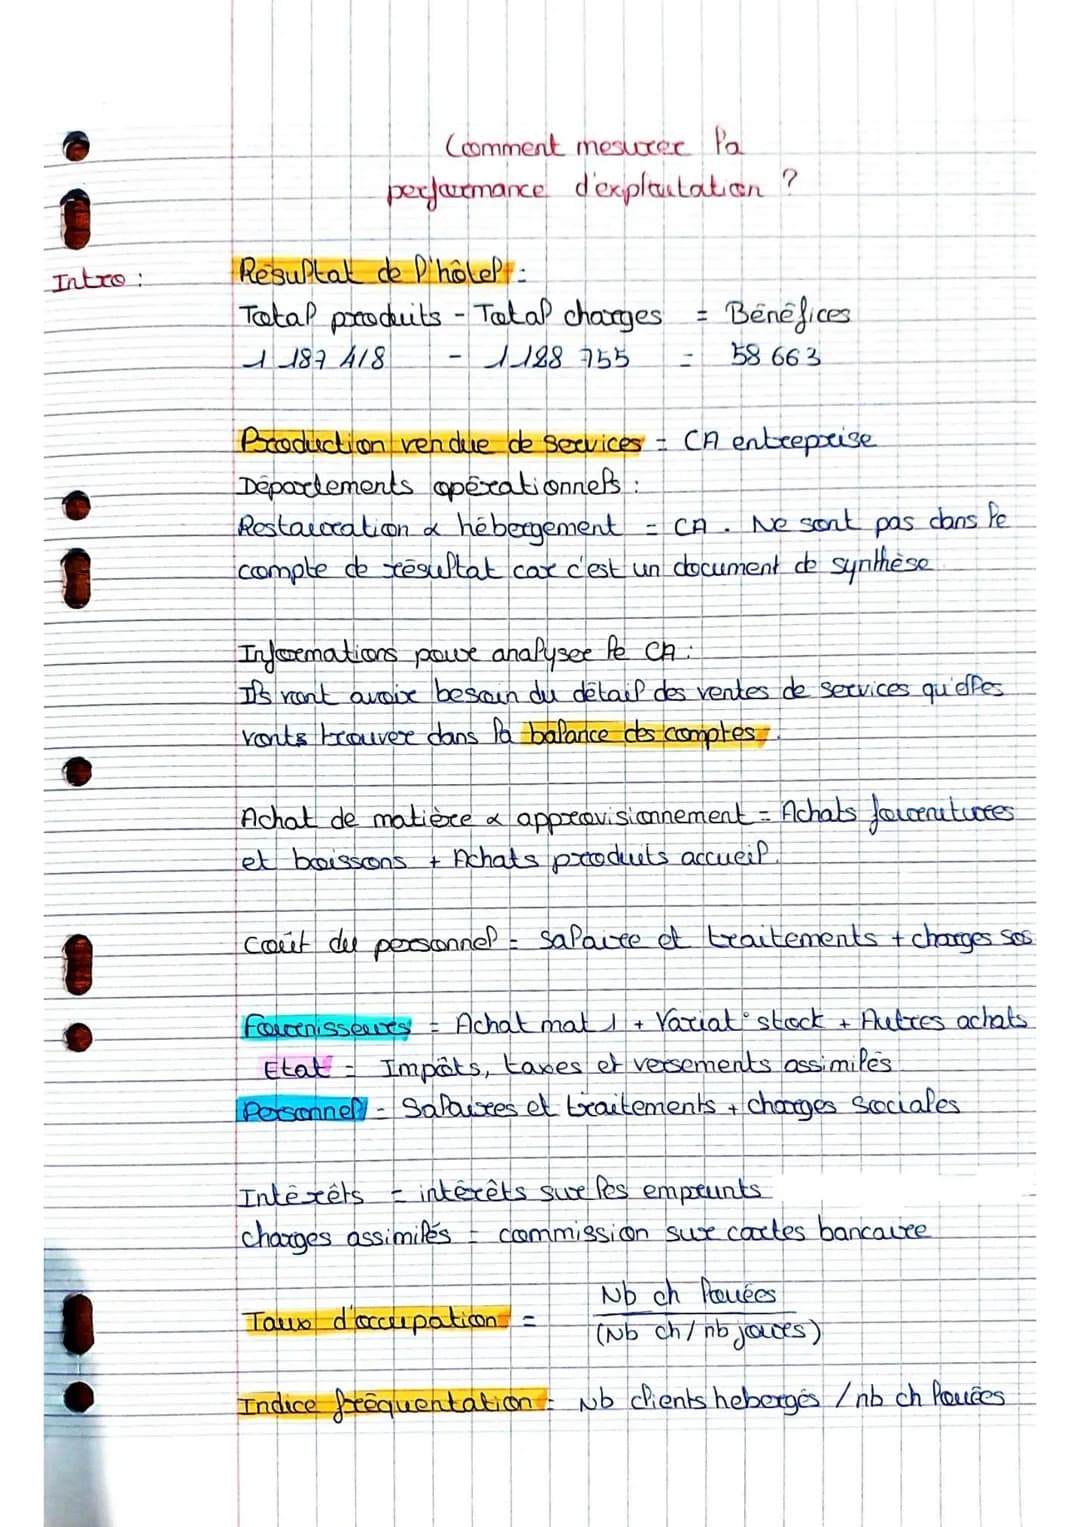 Comment mesurer la
performance d'exploitation ?
Intro :
Résultat de l'hôtel :
Total produits - Total charges = Bénéfices
1 187 418 - 1 128 755 = 58 663
Production vendue de services = CA entreprise
Départements opérationnels :
Restauration & hébergement = CA. Ne sont pas dans le
compte de résultat car c'est un document de synthèse
Informations pour analyser le CA :
Ils vont avoir besoin du détail des ventes de services qu'elles
vonts trouver dans la balance des comptes.
Achat de matière & approvisionnement = Achats fournitures
et boissons + Achats produits accueil.
Coût du personnel = Salaire et traitements + charges sos
Fournisseurs = Achat mat 1 + Variat° stock + Autres achats
Etat = Impôts, taxes et versements assimilés
Personnel = Salaires et traitements + charges sociales
Intérêts = intérêts sur les emprunts
charges assimilés = commission sur cartes bancaire
Taux d'occupation = Nb ch louées
(Nb ch / nb jours)
Indice fréquentation = Nb clients hebergés / nb ch louées